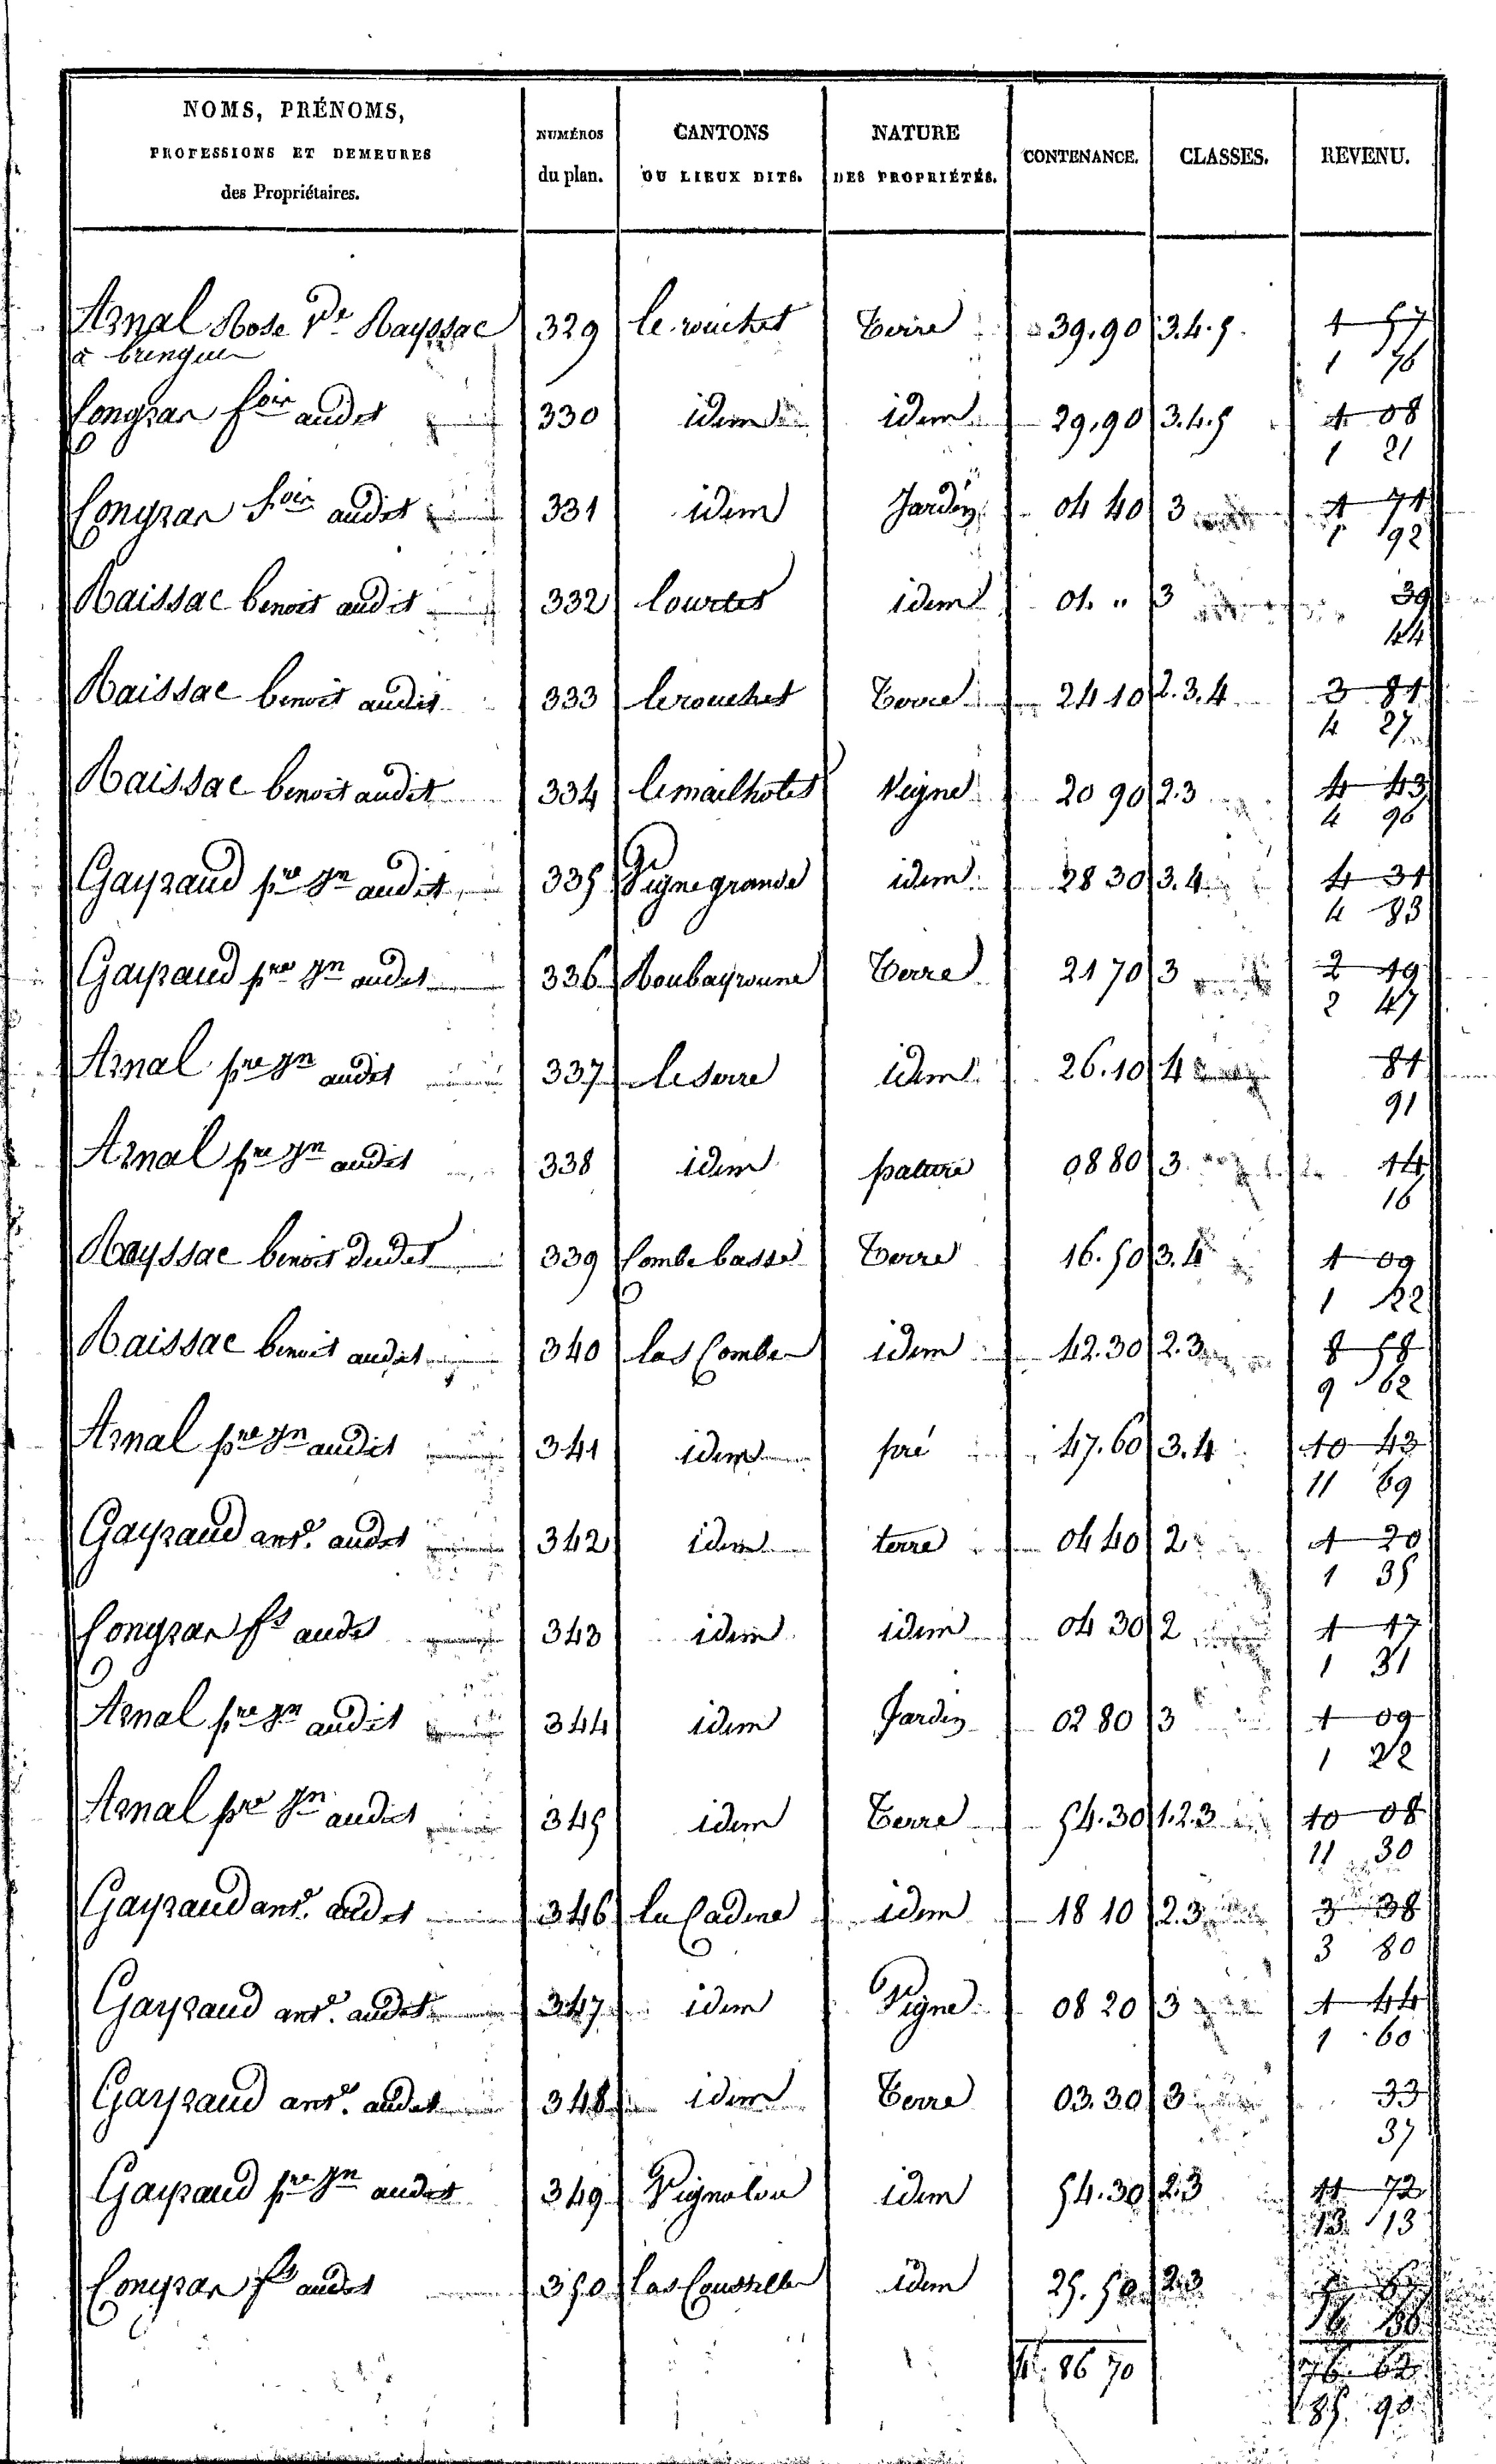 NOMS, PRÉNOMS,
PROFESSIONS ET DEMEURES
des Propriétaires.
NUMÉROS
du plan.
CANTONS
OU LIEUX DITS.
NATURE
DES PROPRIÉTÉS.
CONTENANCE.
CLASSES.
REVENU.
Arnal Rose Ve Rayssac 329 le rouchet Terre 39.90 3.4.5 1 57
à brengues 1 76
Congzar foix audit 330 idem idem 29.90 3.4.5 1 08
1 21
Congzar foix audit 331 idem Jardin 04 40 3 1 71
1 92
Raissac benoit audit 332 Courtes idem 01 " 3 39
44
Raissac benoit audit 333 le rouchet Terre 24 10 2.3.4 3 81
4 27
Raissac benoit audit 334 le mailhotet Vigne 20 90 2.3 4 43
4 96
Gayraud pre Jn audit 335 Vigne grande idem 28 30 3.4 4 31
4 83
Gayraud pre Jn audit 336 Roubayroune Terre 21 70 3 2 19
2 47
Arnal pre Jn audit 337 le serre idem 26.10 4 81
91
Arnal pre Jn audit 338 idem pature 08 80 3 14
16
Rayssac benoit dudit 339 Combe basse Terre 16.50 3.4 1 09
1 22
Raissac benoit audit 340 las Combes idem 42.30 2.3 8 58
9 62
Arnal pre Jn audit 341 idem pré 47.60 3.4 10 43
11 69
Gayraud ant. audit 342 idem terre 04 40 2 1 20
1 35
Congzar fs audt 343 idem idem 04 30 2 1 17
1 31
Arnal pre Jn audit 344 idem Jardin 02 80 3 1 09
1 22
Arnal pre Jn audit 345 idem Terre 54.30 1.2.3 10 08
11 30
Gayraud ant. audit 346 la Cadene idem 18 10 2.3 3 38
3 80
Gayraud ant. audit 347 idem Vigne 08 20 3 1 44
1 60
Gayraud ant. audit 348 idem Terre 03.30 3 33
37
Gayraud pre Jn audit 349 Vignolou idem 54.30 2.3 11 72
13 13
Congzar fs audit 350 las Coustelles idem 25.50 2.3
86 70 76 62
85 90